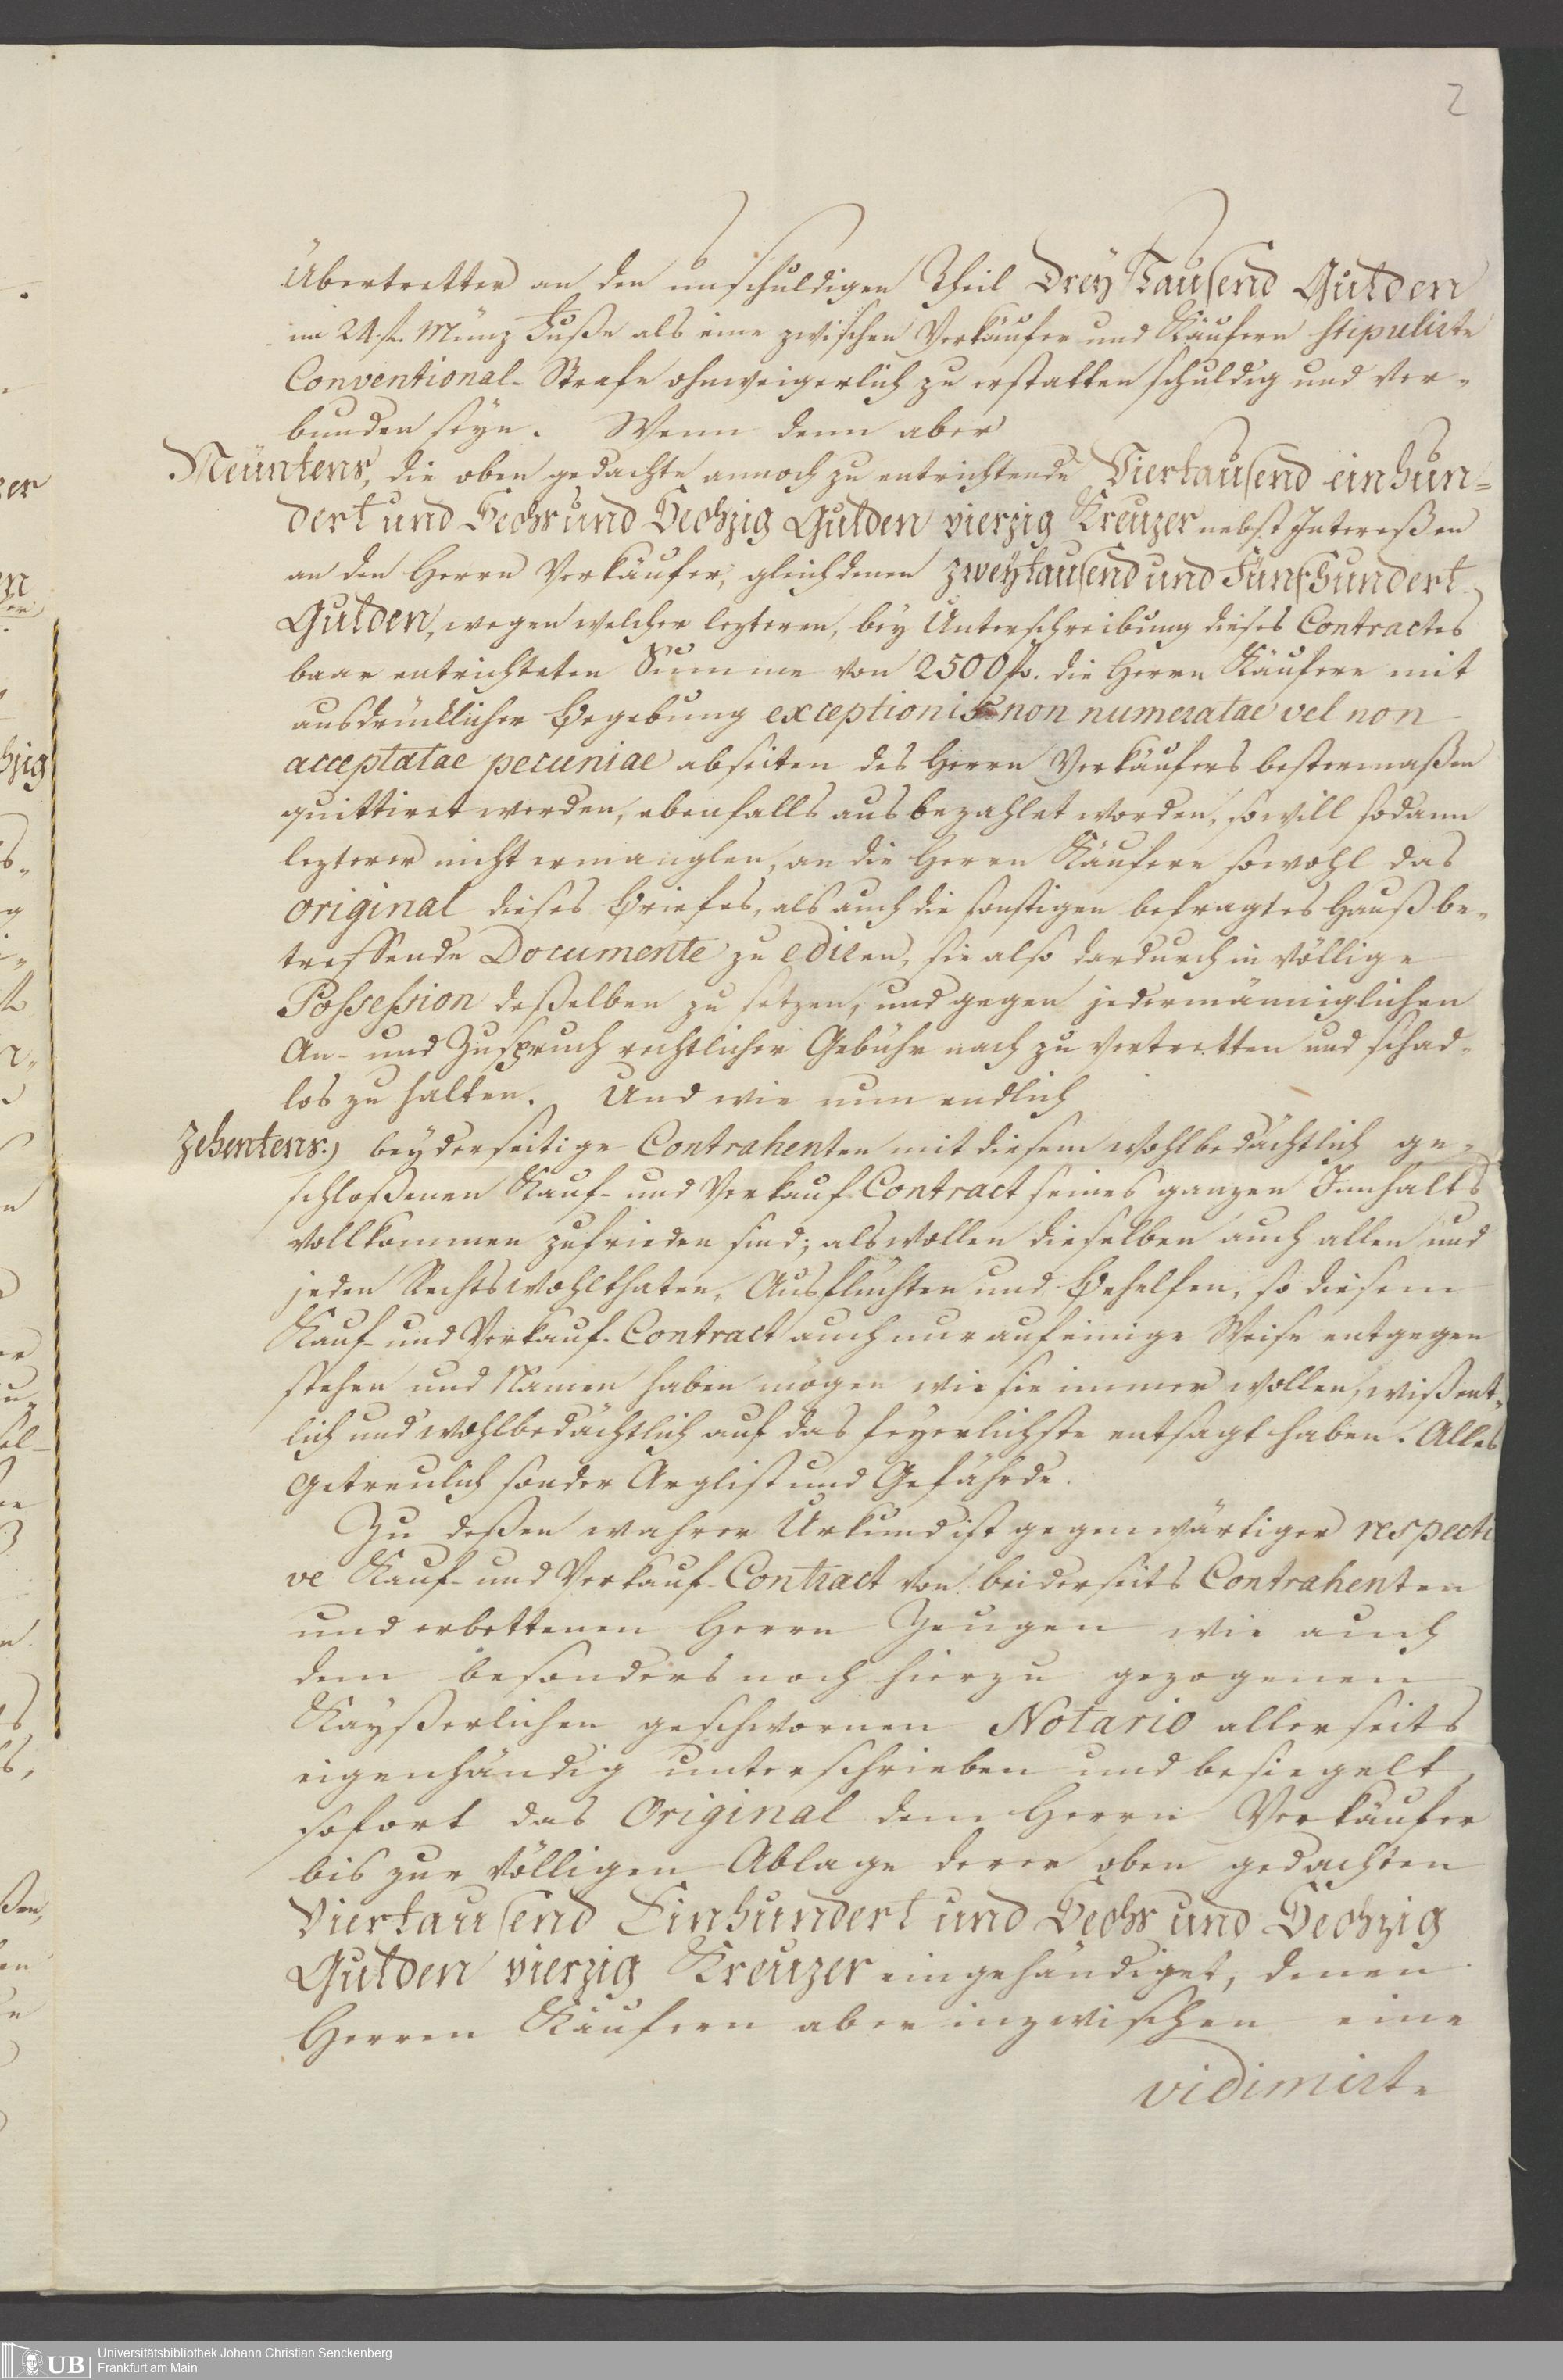 2
Übertretter an den unschuldigen Theil Drey Tausend Gulden
im 24. fl. Münz Fuße als eine zwischen Verkäufer und Käufern stipulirte
Conventional-Strafe ohnweigerlich zu erstatten schuldig und ver-
bunden seyn. Wenn denn aber
Neüntens, die oben gedachte annoch zu entrichtende Viertausend einhun-
dert und Sechs und Sechzig Gulden vierzig Kreuzer nebst Intereßen
an den Herrn Verkäufer, gleich denen zweytausend und Fünfhundert
Gulden, wegen welcher lezteren, bey Unterschreibung dieses Contractes
baar entrichteten Summe von 2500 fl. die Herrn Käufere mit
ausdrücklicher Begebung exceptionis non numeratae vel non
acceptatae pecuniae abseiten des Herrn Verkäufers bestermaßen
quittiret werden, ebenfalls ausbezahlet worden, so will sodann
lezterer nicht ermanglen, an die Herrn Käufere sowohl das
original dieses Briefes, als auch die sonstigen befragtes Hauß be-
treffende Documente zu ediren, sie also dardurch in völlige
Possession deßelben zu setzen, und gegen jedermänniglichen
An- und Zuspruch rechtlicher Gebühr nach zu vertretten und schad-
los zu halten. Und wie nun endlich
Zehentens.) beyderseitige Contrahenten mit diesem wohlbedächtlich ge-
schloßenen Kauf- und Verkauf-Contract seines ganzen Innhalts
vollkommen zufrieden sind; als wollen dieselben auch allen und
jeden Rechtswohlthaten, Ausflüchten und Behelfen, so diesem
Kauf- und Verkauf-Contract auch nur auf einige Weise entgegen
stehen und Namen haben mögen wie sie immer wollen, wißent-
lich und wohlbedächtlich auf das feyerlichste entsagt haben. Alles
getreulich sonder Arglist und Gefährde.
Zu deßen wahrer Urkund ist gegenwärtiger respecti
ve Kauf- und Verkauf-Contract von beiderseits Contrahenten
und erbettenen Herrn Zeugen wie auch
dem besonders noch hierzu gezogenen
Kayßerlichen geschwornen Notario allerseits
eigenhändig unterschrieben und besiegelt,
sofort das Original dem Herrn Verkäufer
bis zur völligen Ablage derer oben gedachten
Viertausend Einhundert und Sechs und Sechzig
Gulden vierzig Kreuzer eingehändiget, denen
Herren Käufern aber inzwischen eine
vidimirte
UB Universitätsbibliothek Johann Christian Senckenberg
Frankfurt am Main